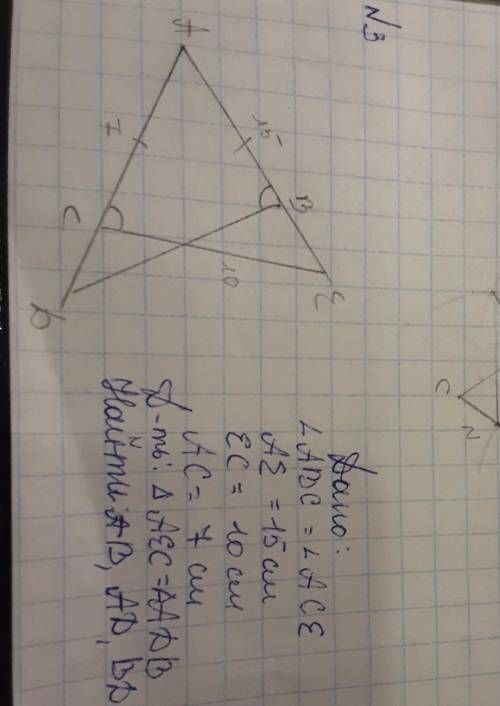 N3
A
15
B
E
7
C
10
D
C
N
Дано:
∠ABC = ∠ACE
AE = 15 см
EC = 10 см
AC = 7 см
Д-ть: △AEC = △ADB
Найти: AB, AD, BD